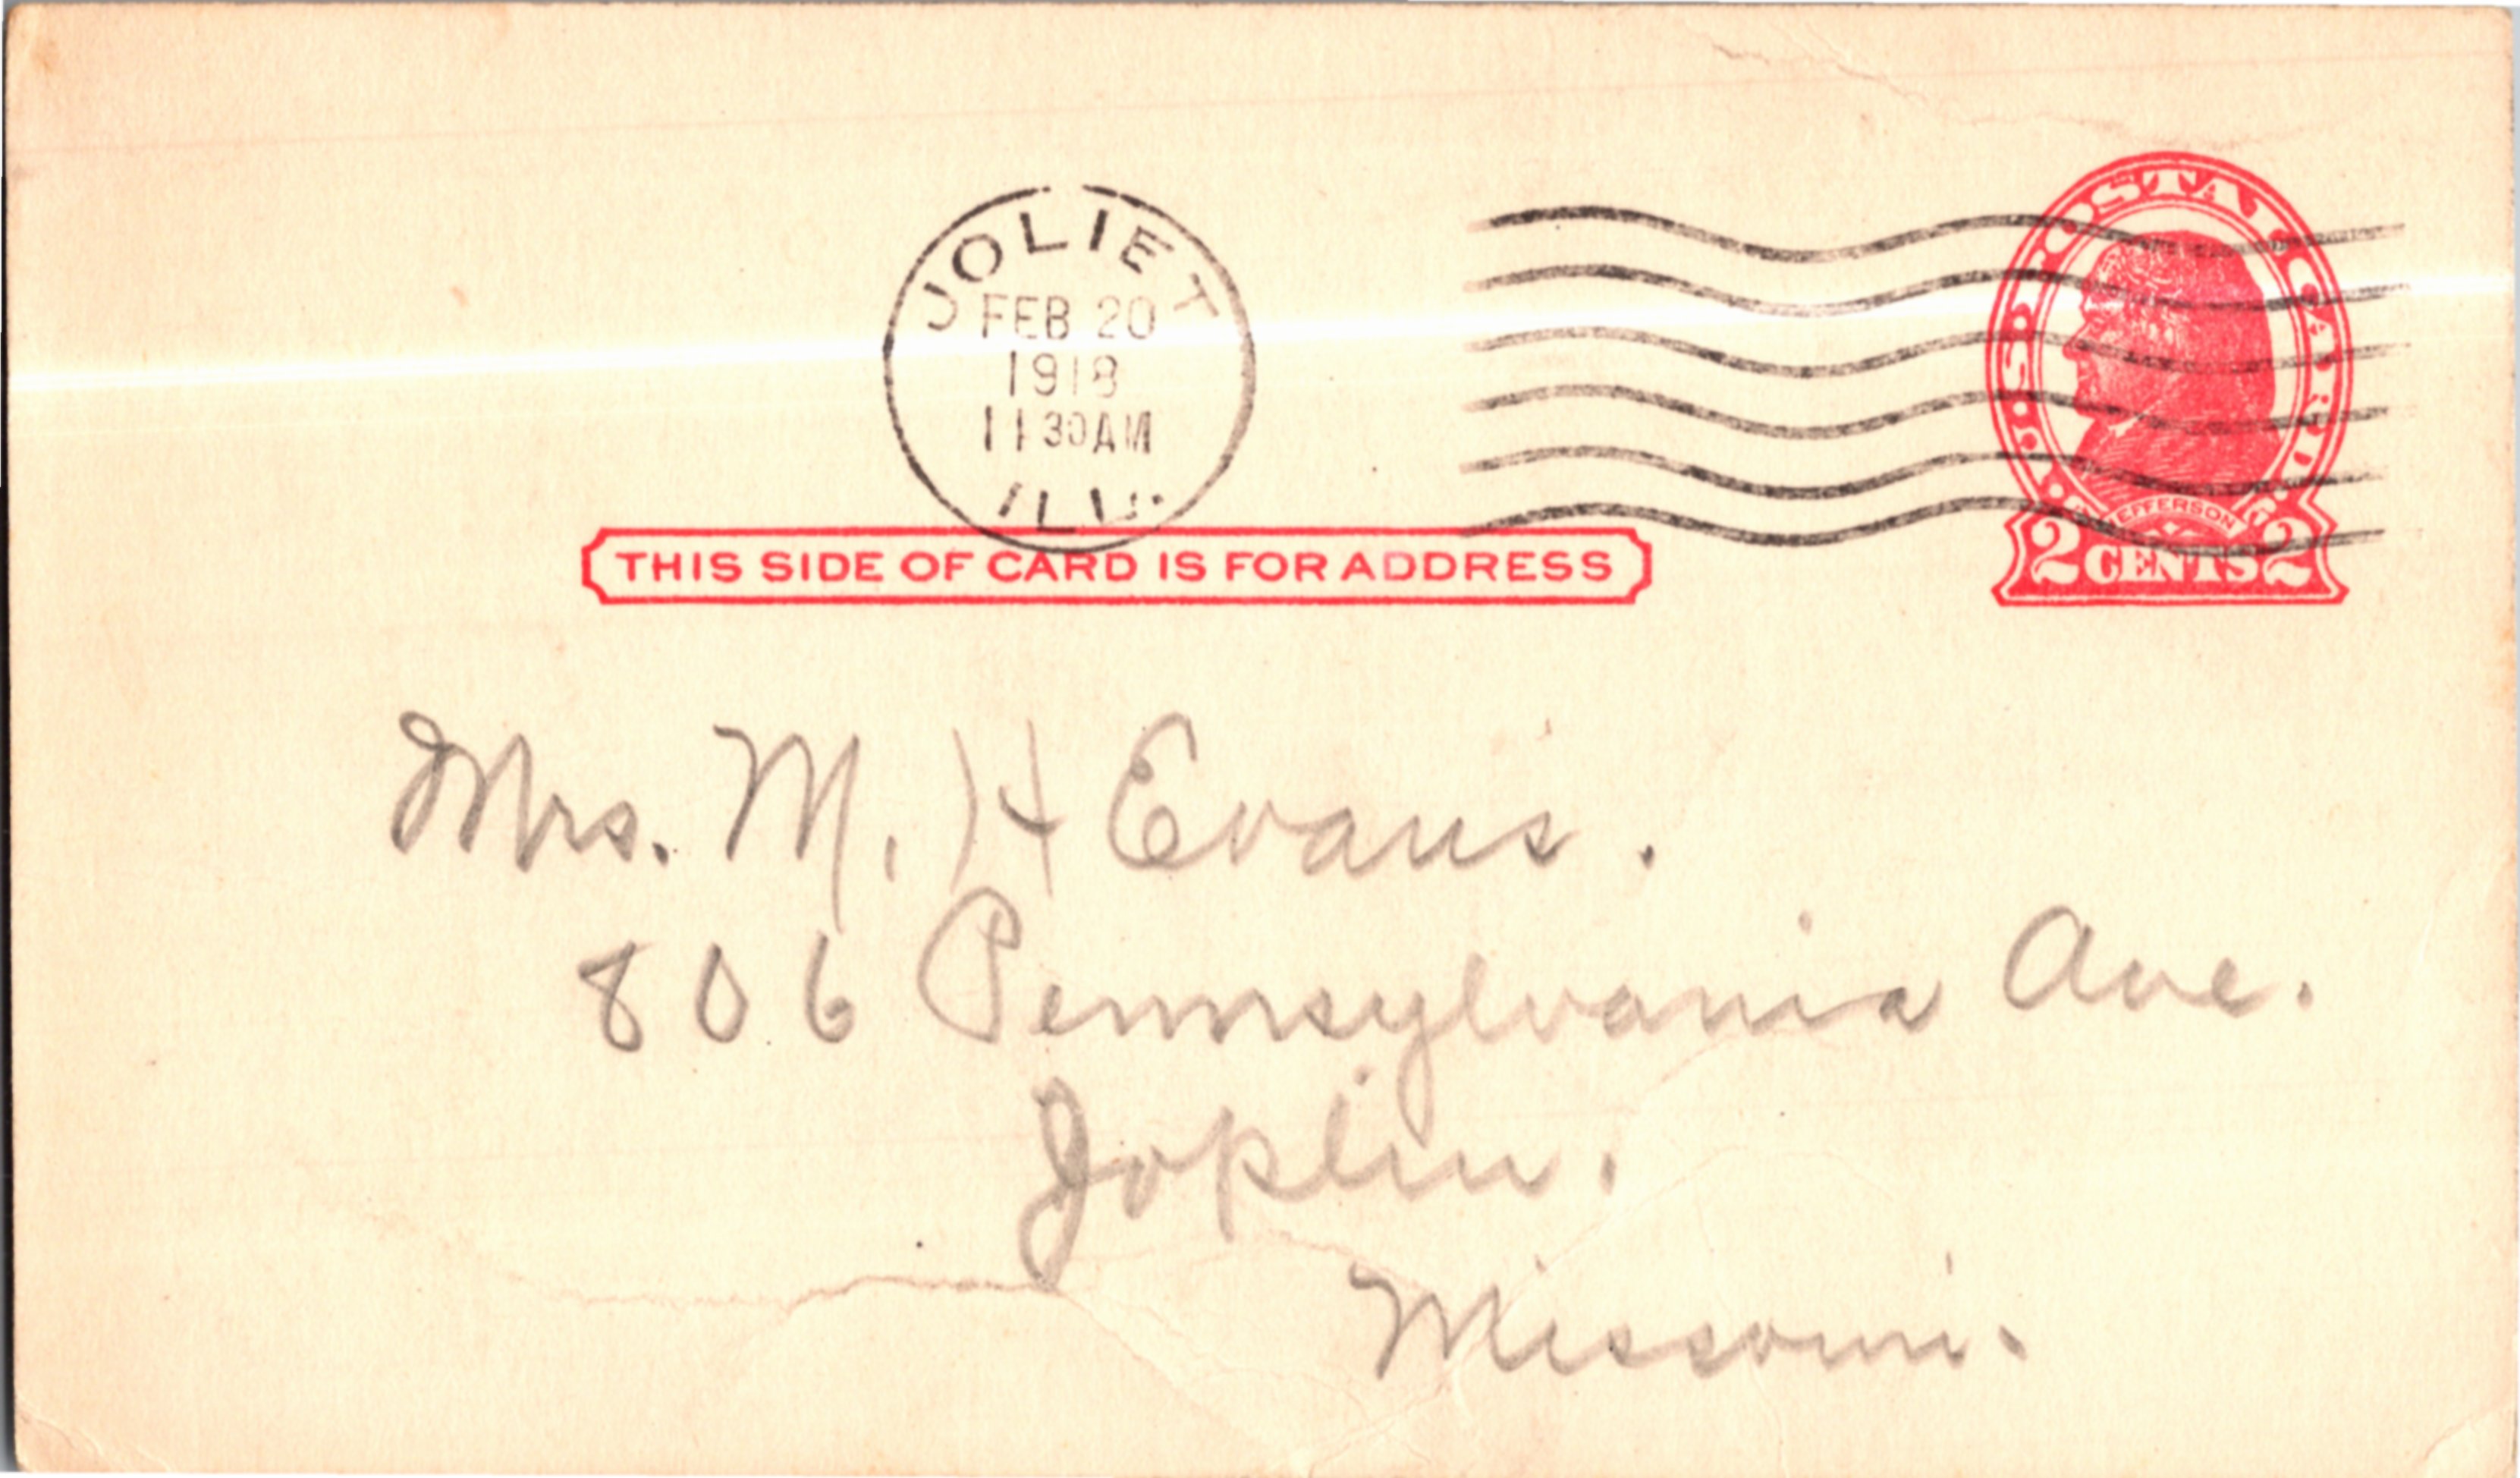 JOLIET
FEB 20
1918
11 30AM
ILL.
U.S. POSTAL CARD
JEFFERSON
2 CENTS 2
THIS SIDE OF CARD IS FOR ADDRESS
Mrs. M. H Evans.
806 Pennsylvania Ave.
Joplin.
Missouri.